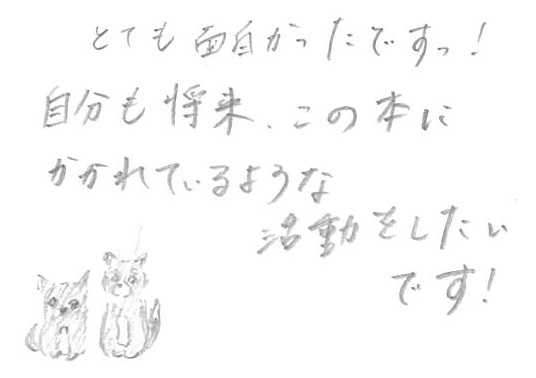 とても面白かったですっ!
自分も将来、この本に
かかれているような
活動をしたい
です!